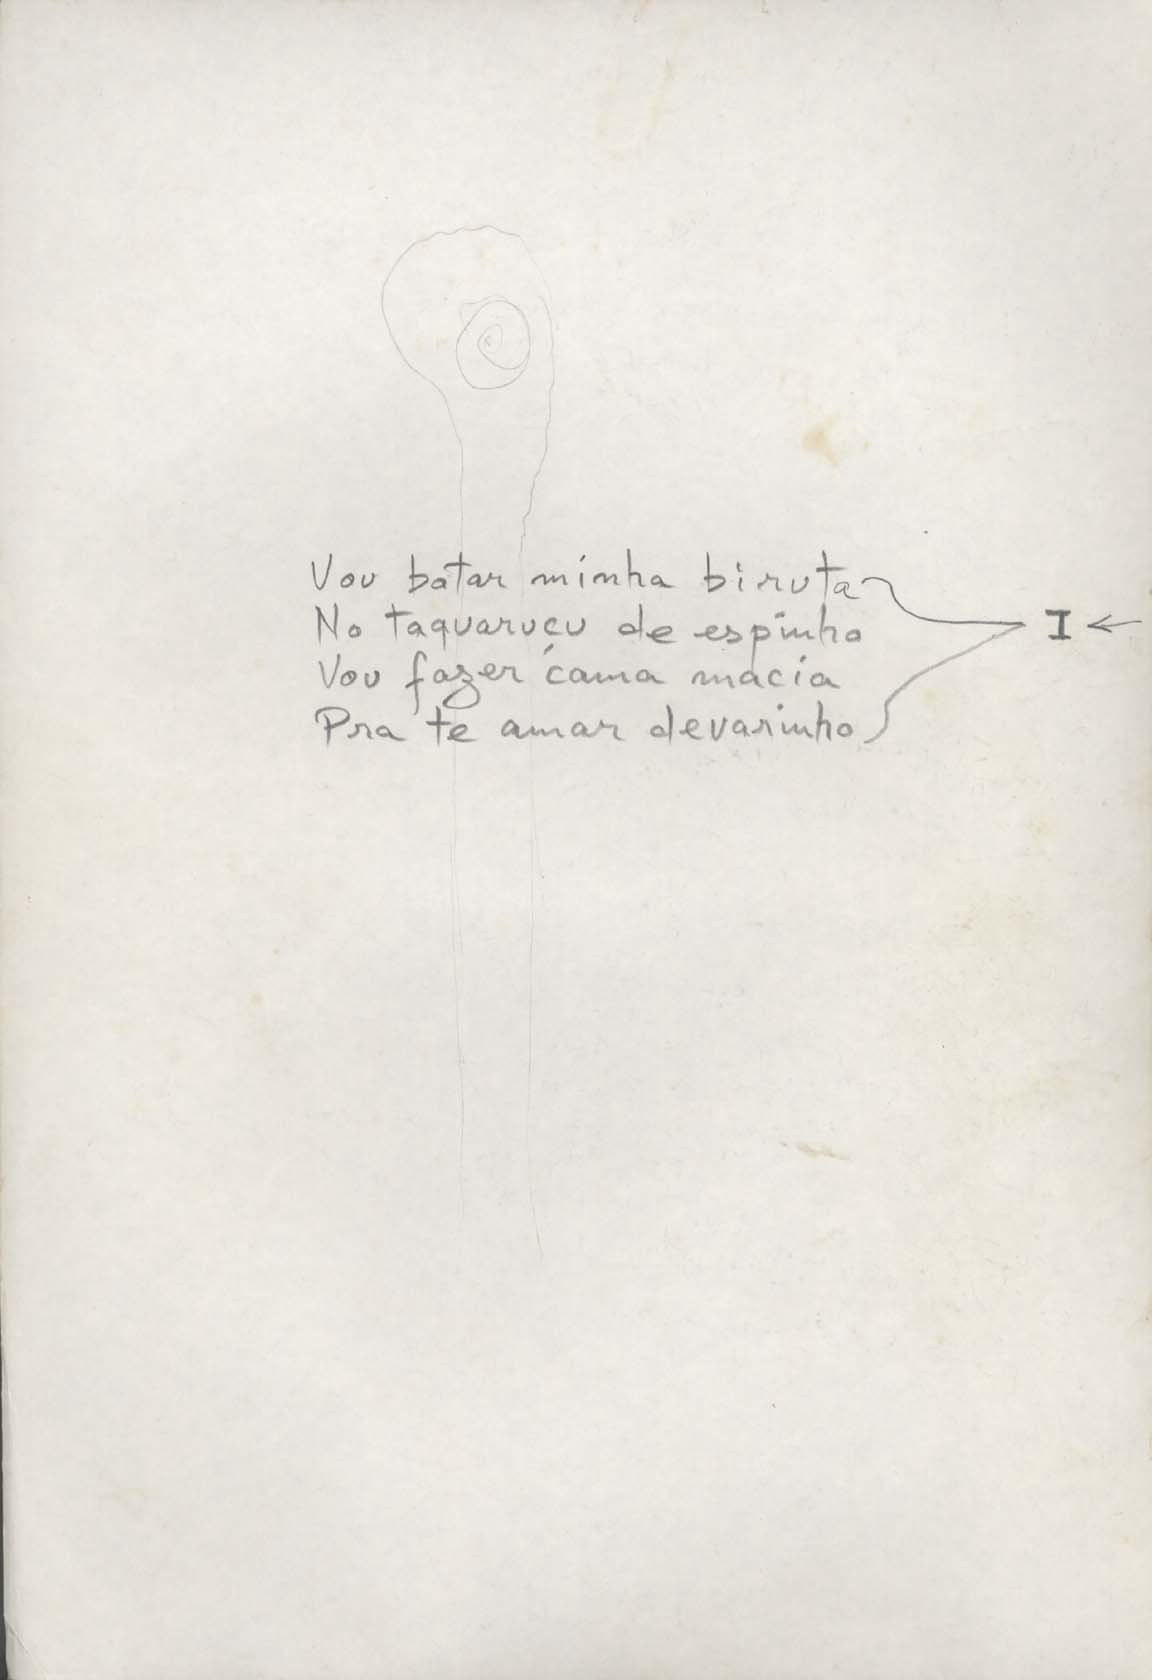 Vou batar minha biruta
No taquaruçu de espinho I ←
Vou fazer cama macia
Pra te amar devarinho